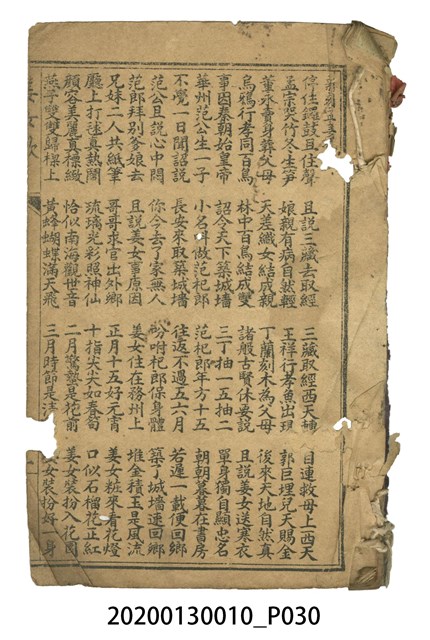 停住鑼鼓且住聲 且說三藏去取經 三藏取經西天轉 目連救母上西天
孟宗哭竹冬生笋 娘親有病自然輕 王祥行孝魚出現 郭巨埋兒天賜金
董永賣身葬父母 天差織女結成親 丁蘭刻木為父母 後來天地自然真
烏鴉行孝同百鳥 林中百鳥結成雙 諸般古賢休要說 且說姜女送寒衣
事因秦朝始皇帝 詔令天下築城墻 三丁抽一五抽二 單身獨自顯忠名
華州范公生一子 小名叫做范杞郎 范杞郎年方十五 朝朝暮暮在書房
不覺一日聞詔說 長安來取築城墻 往返不過五六月 若遲一載便回鄉
范公且說心中悶 你今去了家無人 吩咐杞郎保身體 築了城墻速回鄉
范郎拜别爹娘去 且說姜女事原因 姜女住在務州上 堆金積玉是風流
兄妹二人共紙筆 哥哥求官出外鄉 正月十五好元宵 姜女粧來看花燈
廳上打逑真熱鬧 琉璃光彩照神仙 十指尖尖如春筍 口似石榴花正紅
顏容美麗真標緻 恰似南海觀世音 二月驚蟄是花前 姜女裝扮入花園
燕子雙雙歸樑上 黃蜂蝴蝶滿天飛 三月時節是 女裝扮好一身
姜女歌
20200130010_P030